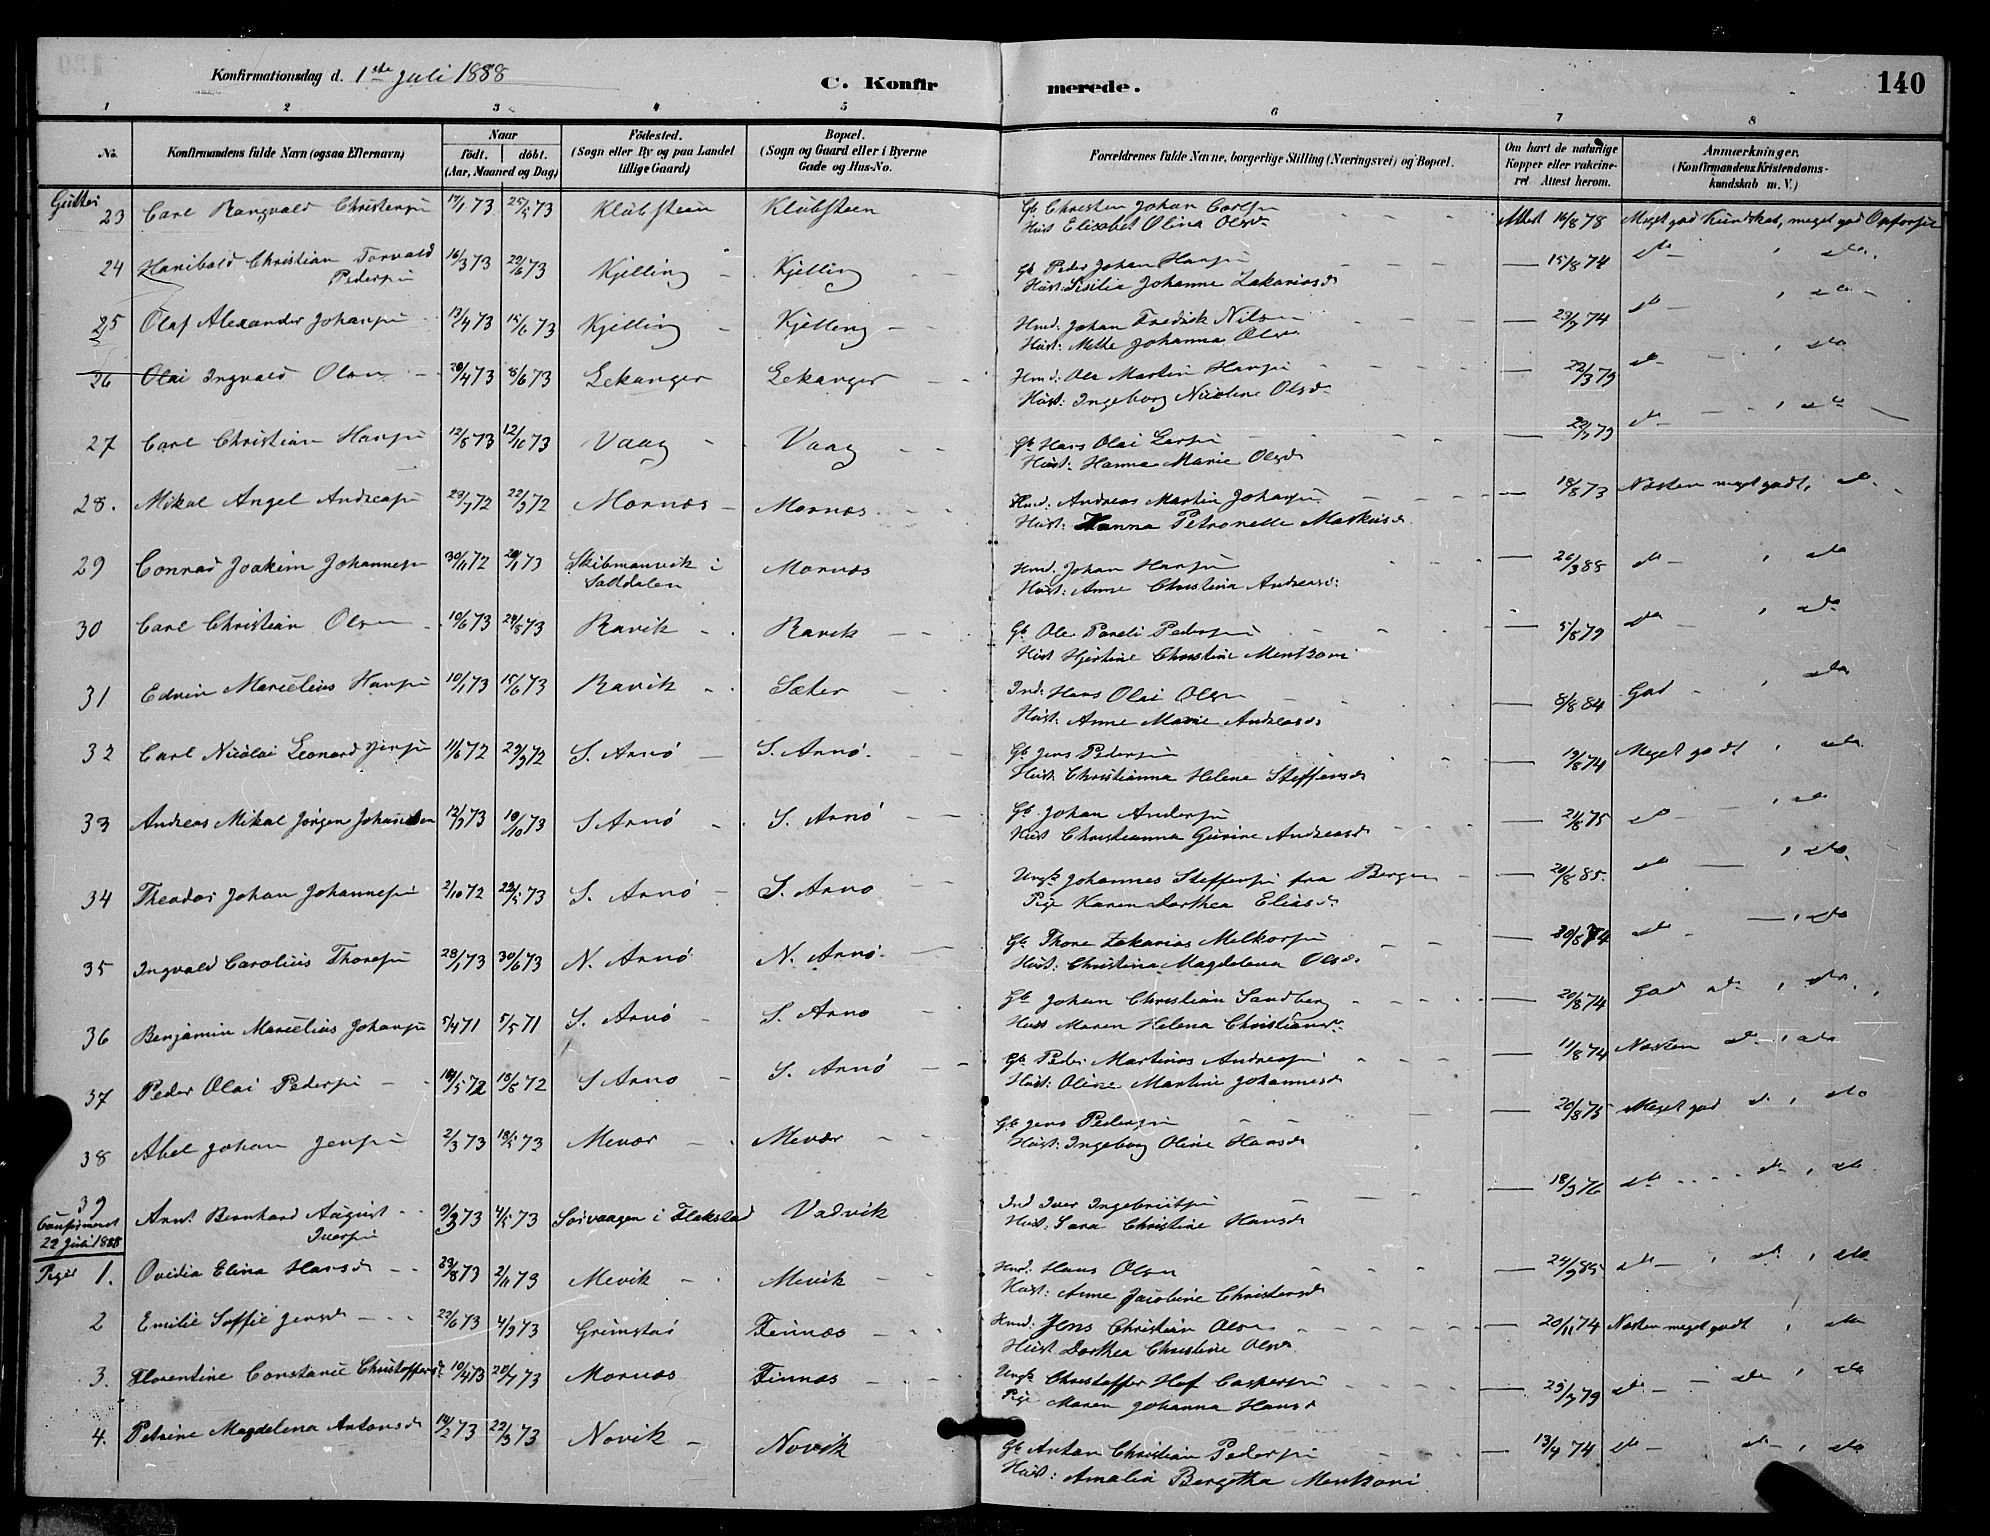 140
Konfirmationsdag d. 1ste Juli 1888
C. Konfirmerede.
1 2 3 4 5 6 7 8
No. Konfirmandens fulde Navn (ogsaa Efternavn) Naar født. døbt. (Aar, Maaned og Dag) Fødested. (Sogn eller By og paa Landet tillige Gaard) Bopæl. (Sogn og Gaard eller i Byerne Gade og Hus-No. Forældrenes fulde Navne, borgerlige Stilling (Næringsvei) og Bopæl. Om havt de naturlige Kopper eller vakcineret Attest herom. Anmærkninger. (Konfirmandens Kristendomskundskab m. V.)
Gutter
23 Carl Rangvald Christensen 17/1 73 25/5 73 Klubsteen Klubsteen Gb Christen Johan Carlsen Attest 16/8 78 Meget god Kundskab, meget god Opførsel
Hust Elisabet Olina Olsd
24 Hanibald Christian Torvald Pedersen 16/3 73 22/6 73 Kjelling Kjelling Gb Peder Johan Hansen 15/8 74 do do
Hust: Sisilia Johanne Zakariasd
25 Olaf Alexander Johansen 13/4 73 15/6 73 Kjelling Kjelling Hmd: Johan Fredrik Nilsen 23/7 74 do do
Hust: Methe Johanna Olsd
26 Olai Ingvald Olsen 20/4 73 8/6 73 Lekanger Lekanger Hmd: Ole Martin Hansen 22/3 79 do do
Hust: Ingeborg Nicoline Olsd
27 Carl Christian Hansen 12/8 73 12/10 73 Vaag Vaag Gb Hans Olai Larsen 22/7 79 do do
Hust: Hanna Marie Olsd
28. Mikal Angel Andreasen 23/7 72 22/9 72 Mornæs Mornæs Hmd: Andreas Martin Johansen 18/8 73 Næsten meget godt, do
Hust: Hanna Petronelle Markusd
29 Conrad Joakim Johannesen 30/11 72 20/1 73 Skibmanvik i Saltdalen Mornæs Hmd: Johan Hansen 26/3 88 do do
Hust: Anne Christina Andreasd:
30 Carl Christian Olsen 10/6 73 24/8 73 Ravik Ravik Gb Ole Pareli Pedersen 5/8 79 do do
Hust Hjertine Christine Mentzoni
31 Edvin Marcelius Hansen 10/1 73 15/6 73 Ravik Sæter Ind: Hans Olai Olsen 8/8 84 God do
Hust: Anne Marie Andreasd
32 Carl Nicolai Leonard Jensen 11/6 72 29/9 72 S. Arnø S. Arnø. Gb Jens Pedersen 19/8 74 Meget godt, do
Hust: Christianna Helene Steffensd
33 Andreas Mikal Jørgen Johansen 12/9 73 19/10 73 S Arnø S. Arnø Gb Johan Andersen 21/8 75 do do
Hust Christianna Gurine Andreasd
34 Theodor Johan Johannesen 2/10 72 22/5 73 S. Arnø S. Arnø Ungk Johannes Steffensen fra Bergen 20/8 85. do do
Pige Karen Dorthea Eliasd
35 Ingvald Carolius Thoresen 28/1 73 30/6 73 N. Arnø N. Arnø. Gb Thore Zakarias Melkorsen 20/8 74 do do
Hust: Christina Magdelena Olsd
36 Benjamin Marcelius Johansen 5/4 71 5/5 71 S. Arnø S. Arnø Gb Johan Christian Sandberg 20/8 74 God do, do
Hust Maren Helena Christiansd
37 Peder Olai Pedersen 19/5 72 18/8 72 S Arnø S. Arnø Gb Peder Martinus Andreasen 11/8 74 Næsten do, do
Hust: Oline Martine Johannesd
38 Abel Johan Jensen 2/3 73 18/5 73 Mevær Mevær Gb Jens Pedersen 20/8 75 Meget god do, do
Hust: Ingeborg Oline Hansd
39 Arnt Bernhard August Iversen 9/3 73 4/5 73 Sørvaagen i Flakstad Vadvik Ind Iver Ingebrigtsen 18/3 76 do do, do
Confirmeret 22 Juli 1888 Hust: Sara Christine Hansd
Piger 1. Ovidia Elina Hansd 23/8 73 2/11 73 Mevik Mevik Hmd: Hans Olsen 24/9 85 do do, do
Hust: Anne Jacobine Christensd
2 Emilie Soffie Jensd 22/6 73 4/9 73 Grimstad Finnæs Hmd: Jens Christian Olsen 20/11 74 Næsten meget godt, do
Hust Dorthea Christine Olsd
3. Florentine Constanse Christoffersd 10/4 73 20/7 73 Mornæs Finnæs Ungk Christoffer Hof Caspersen 25/7 79 do do, do
Pige Maren Johanna Hansd
4. Petrine Magdelena Antonsd 14/2 73 22/3 73 Novik Novik Gb Anton Christian Pedersen 13/4 74 do do, do
Hust: Amalia Bergitha Mentzoni